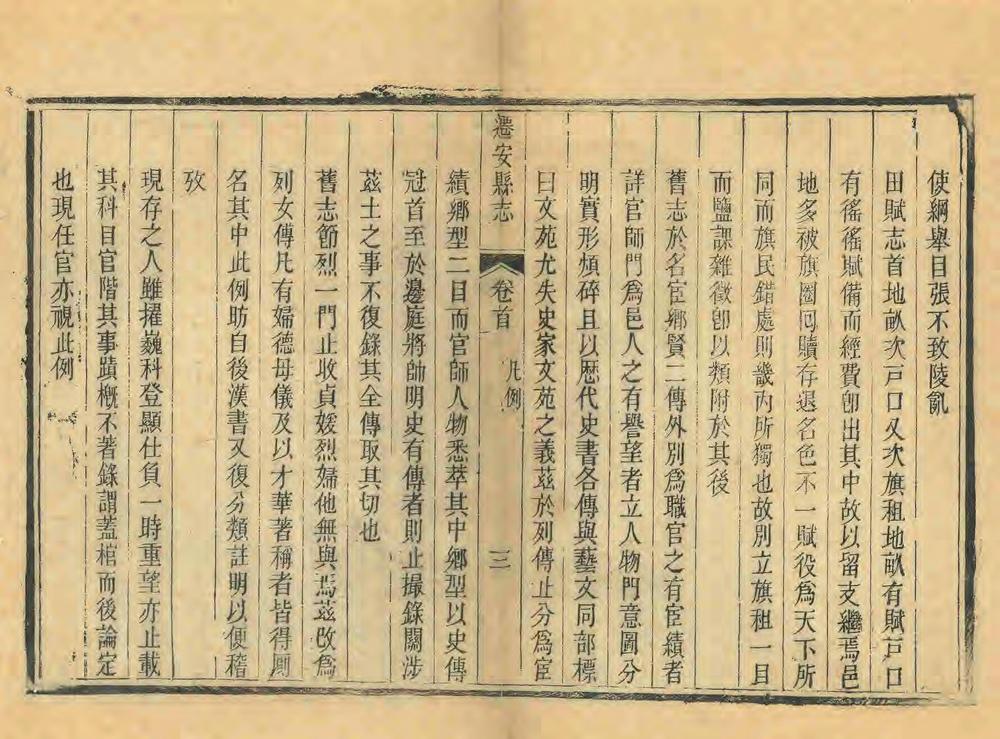 使綱舉目張不致陵亂
田賦志首地畝次戸口又次旗租地畝有賦戸口
有徭徭賦備而經費卽出其中故以留支繼焉邑
地多被旗圈囘贖存退名色不一賦役爲天下所
同而旗民錯處則畿內所獨也故別立旗租一目
而鹽課雜徵卽以類附於其後
舊志於名宦鄉賢二傳外別爲職官之有宦績者
詳官師門爲邑人之有譽望者立人物門意圖分
明實形煩碎且以歷代史書各傳與藝文同部標
曰文苑尤失史家文苑之義茲於列傳止分爲宦
遷安縣志 卷首 凡例 三
績鄉型二目而官師人物悉萃其中鄉型以史傳
冠首至於邊庭將帥明史有傳者則止撮錄關涉
茲土之事不復錄其全傳取其切也
舊志節烈一門止收貞媛烈婦他無與焉茲改爲
列女傳凡有婦德母儀及以才華著稱者皆得厠
名其中此例昉自後漢書又復分類註明以便稽
攷
現存之人雖擢巍科登顯仕負一時重望亦止載
其科目官階其事蹟槪不著錄謂蓋棺而後論定
也現任官亦視此例